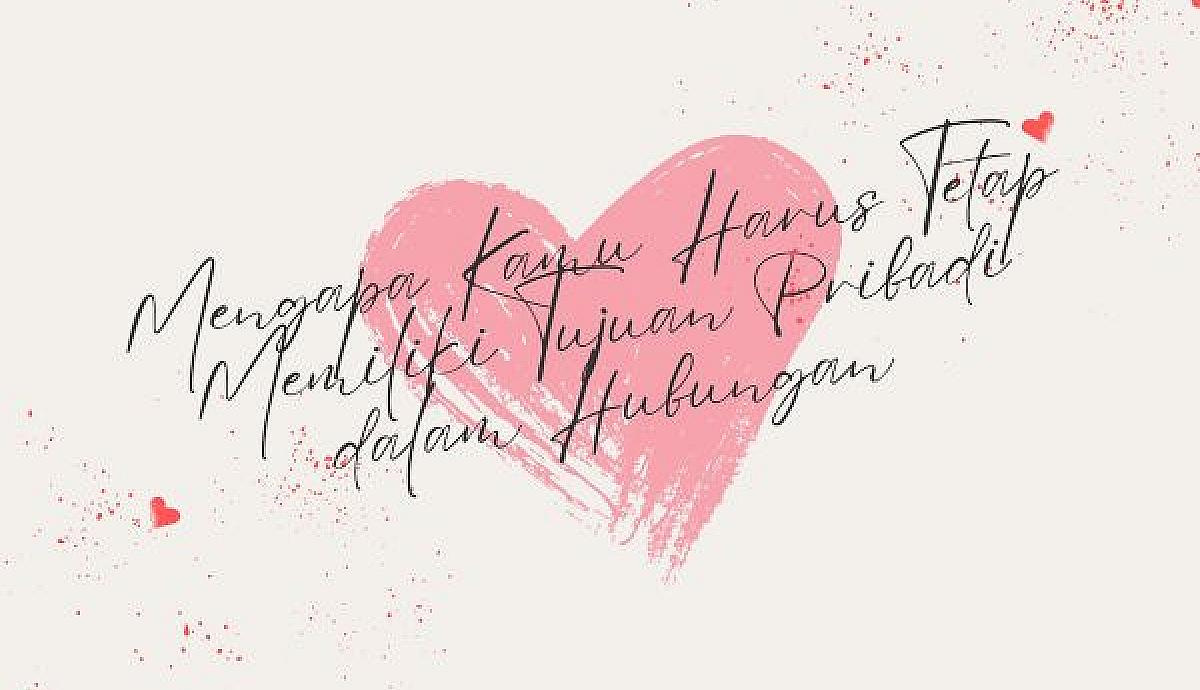 Mengapa Kamu Harus Tetap
Memiliki Tujuan Pribadi
dalam Hubungan